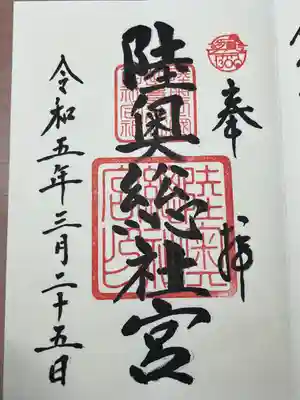 奉拝
陸奥總社宮
令和五年三月二十五日